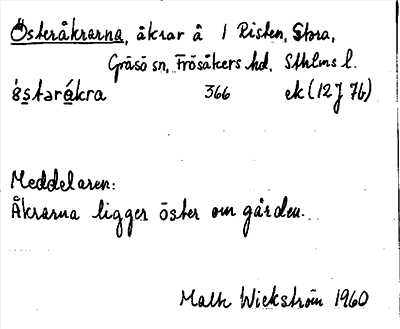 Österåkrarna, åkrar å 1 Risten, Stora,
Gräsö sn, Frösåkers hd, Sthlms l.
östaråkra 366 ek (12J 7b)
Meddelaren:
Åkrarna ligger öster om gården.
Math Wickström 1960